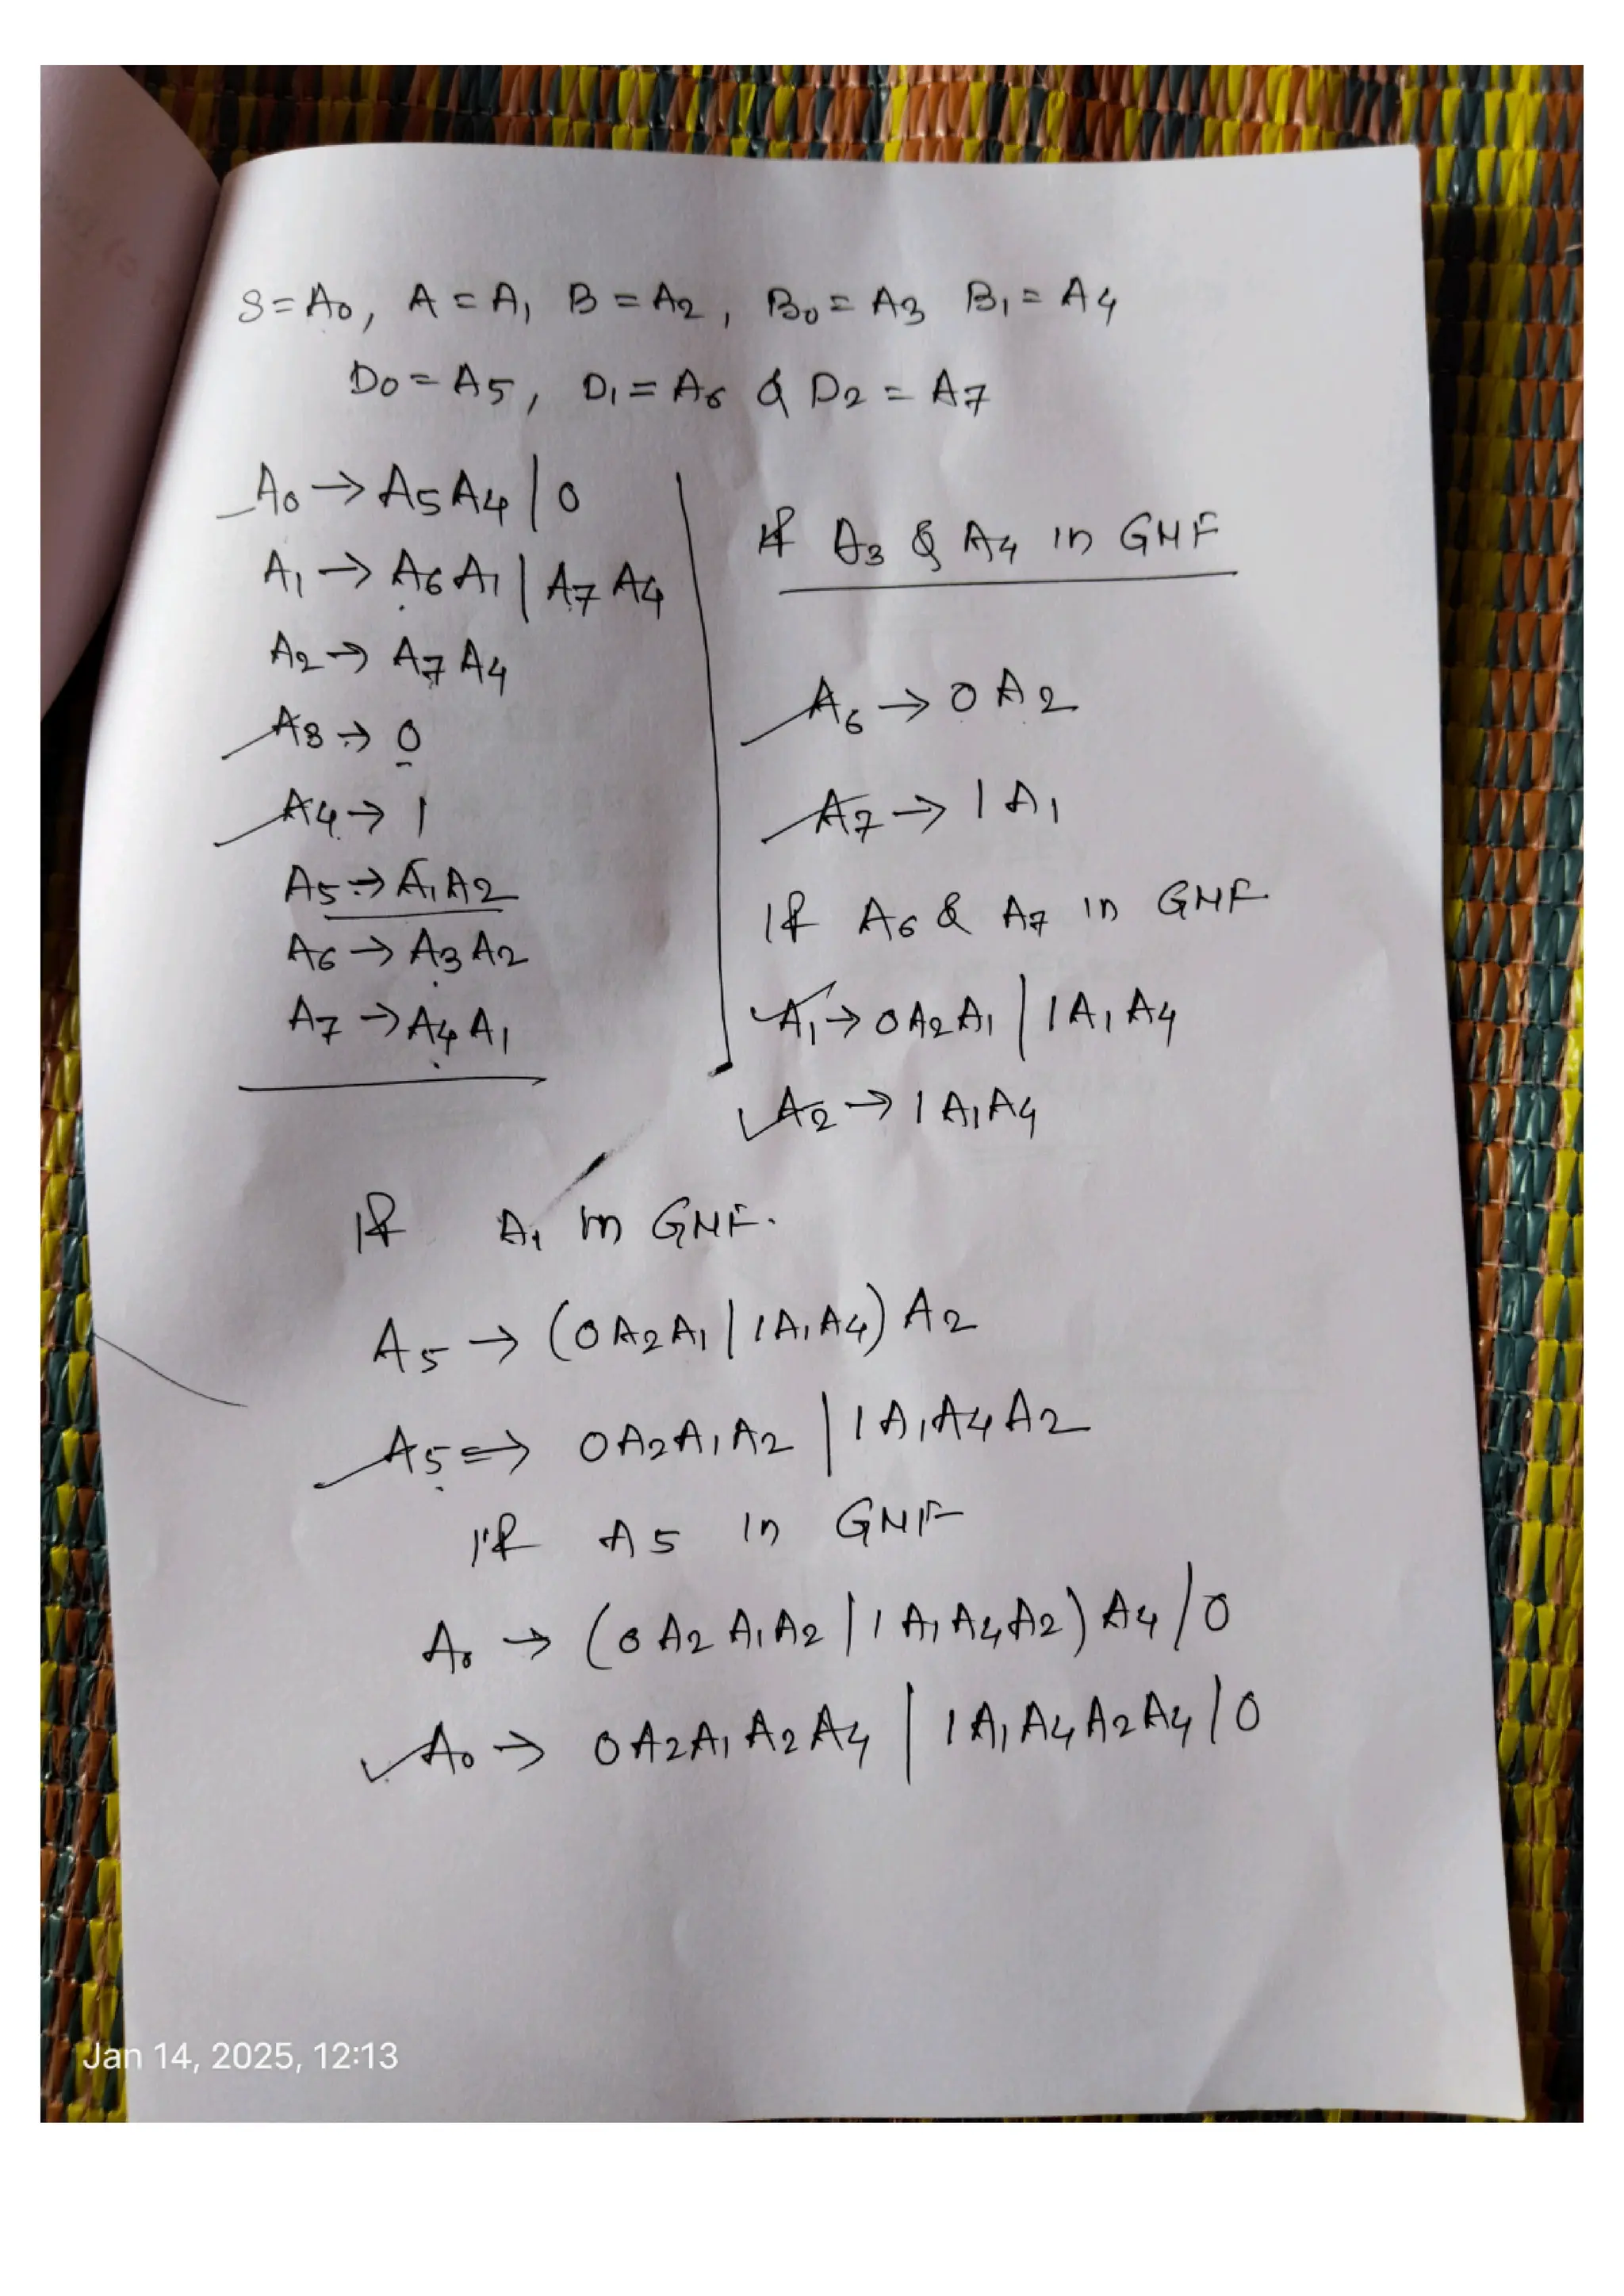 S = A0, A = A1 B = A2, B0 = A3 B1 = A4
D0 = A5, D1 = A6 & D2 = A7
A0 → A5 A4 | 0
A1 → A6 A1 | A7 A4
A2 → A7 A4
A3 → 0
A4 → 1
A5 → A1 A2
A6 → A3 A2
A7 → A4 A1
If A3 & A4 in GNF
A6 → 0 A2
A7 → 1 A1
If A6 & A7 in GNF
A1 → 0 A2 A1 | 1 A1 A4
A2 → 1 A1 A4
If A1 in GNF.
A5 → (0 A2 A1 | 1 A1 A4) A2
A5 ⇒ 0 A2 A1 A2 | 1 A1 A4 A2
If A5 in GNF
A0 → (0 A2 A1 A2 | 1 A1 A4 A2) A4 / 0
A0 → 0 A2 A1 A2 A4 | 1 A1 A4 A2 A4 | 0
Jan 14, 2025, 12:13